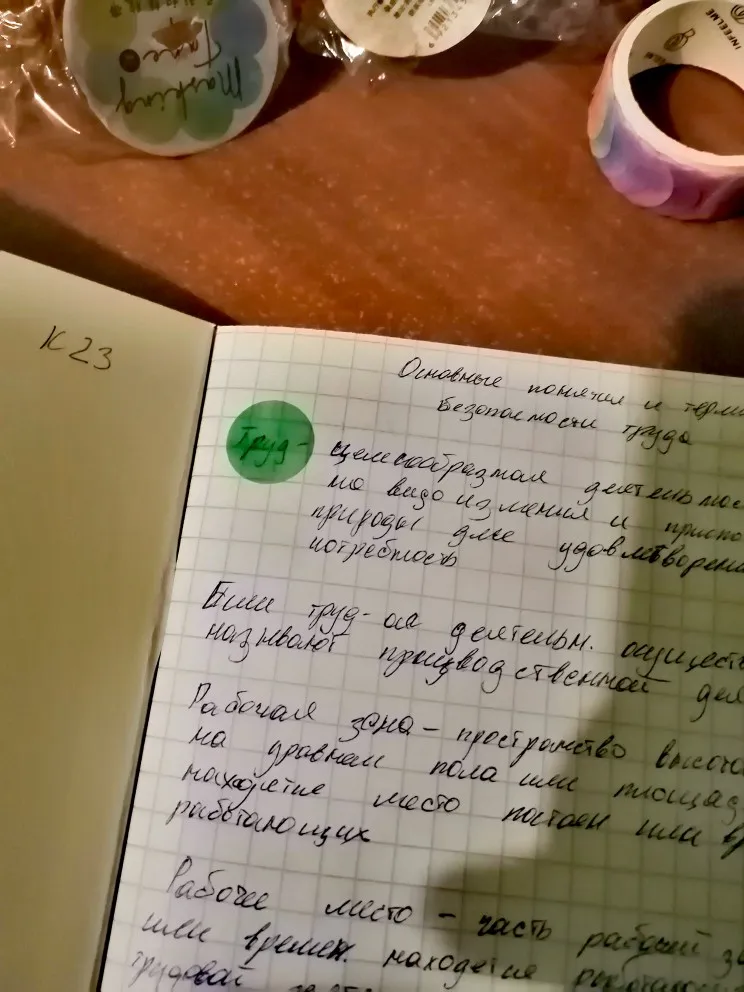 Masking
Tape
INFEELME
К 23
Основные понятия и терми
безопасности труда
Труд - целесообразная деятельнос
на видоизмения и приспо
природы для удовлетворени
потребность
Если труд-ая деятельн. осущест
называют производственной дея
Рабочая зона - пространство высото
на уровнем пола или площад
находятся место постоен или вр
работающих
Рабочее место - часть рабочий зо
или времен. находятся работающ
трудовой